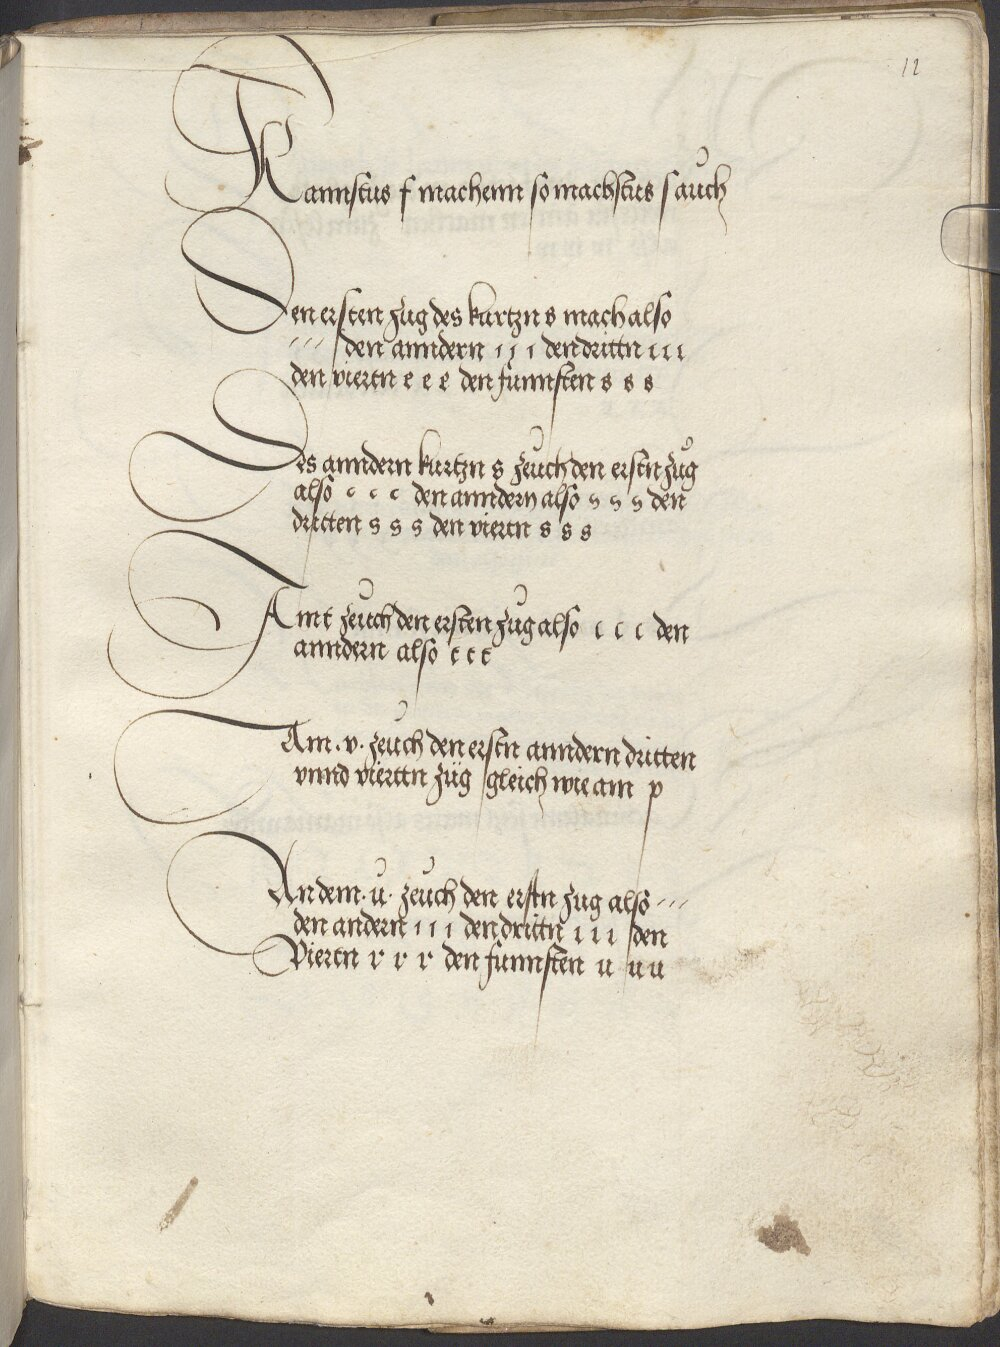 12
Kannstus f machenn so machstus ſ auch
Den ersten zug des kurtzn s mach also
⸍ ⸍ ⸍ den anndern ı ı ı den drittn ι ι ι
den viertn e e e den funnften s s s
Des anndern kurtzn s zeuch den erstn zug
also c c c den anndern also s s s den
dritten s s s den viertn s s s
Am t zeuch den ersten zug also c c c den
anndern also t t t
Am . v . zeuch den erstn anndern dritten
vnnd vierttn züg gleich wie am p
An dem . u . zeuch den erstn zug also ⸍ ⸍ ⸍
den andern ı ı ı den drittn ι ι ι den
Viertn r r r den funnften u u u